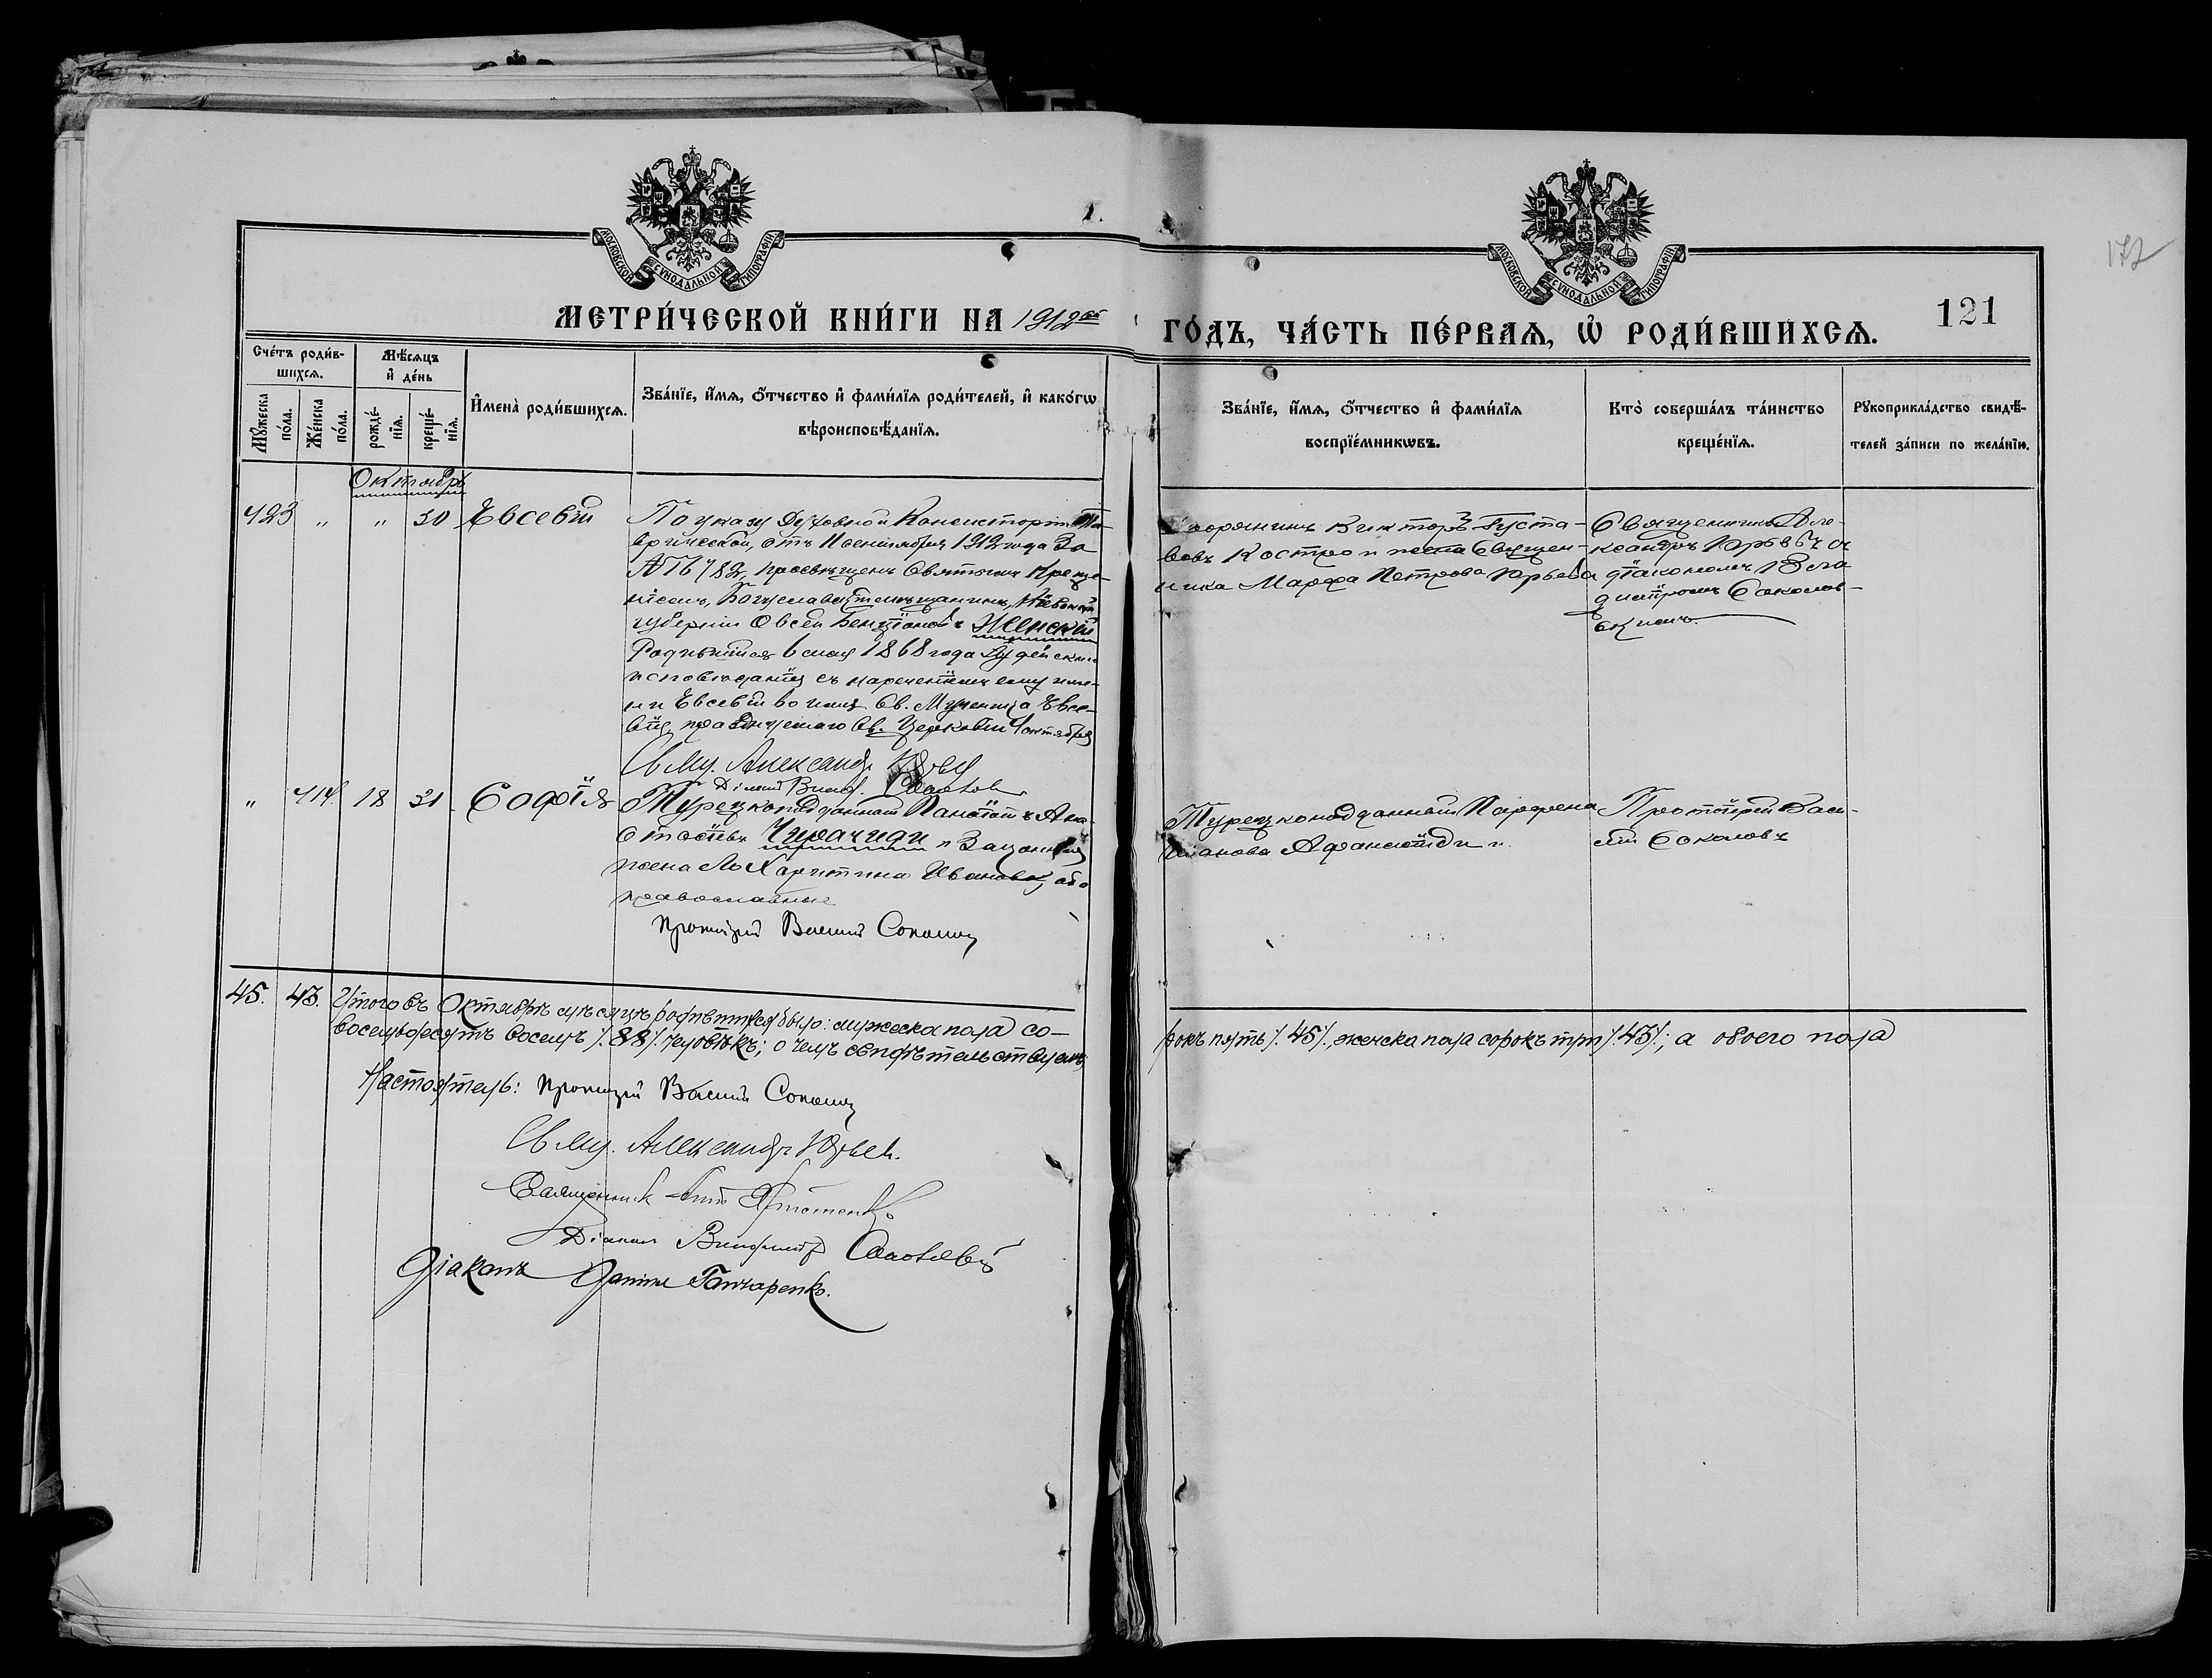 МОСКОВСКОЙ СУНОДАЛЬНОЙ ТИПОГРАФІИ
МОСКОВСКОЙ СУНОДАЛЬНОЙ ТИПОГРАФІИ
172
121
МЕТРИ́ЧЕСКОЙ КНИ́ГИ НА 1912ой ГО́ДЪ, ЧА́СТЬ ПЕ́РВАѦ, Ѡ РОДИ́ВШИХСѦ.
Сче́тъ роди́в-
шихсѧ.
Мѣ́сѧцъ
и҆ де́нь
Мꙋ́жеска
по́ла.
Же́нска
по́ла.
рожде́-
нїѧ.
креще́-
нїѧ.
И҆мена̀ роди́вшихсѧ.
Зва́нїе, и҆́мѧ, ѻ҆́тчество и҆ фами́лїѧ роди́телей, и҆ како́гѡ
вѣроисповѣ́данїѧ.
Зва́нїе, и҆́мѧ, ѻ҆́тчество и҆ фами́лїѧ
воспрїе́мникѡвъ.
Кто̀ соверша́лъ та́инство
креще́нїѧ.
Рꙋкоприкла́дство свидѣ́-
телей за́писи по жела́нїю.
Октябрь
423 " " 30 Евсевій
По указу Духовной Консисторіи Та-
врической, отъ 11 сентября 1912 года за
№ 16782, просвѣщенъ Святымъ Креще-
ніемъ, Богуславскій мѣщанинъ, Кіевской
губерніи Овсей Бенціоновъ Женскій
Родившійся 6 мая 1868 года Іудейскаго
исповѣданія съ нареченіемъ ему име-
ни Евсевій во имя Св. Мученика Евсе-
вія празднуемаго Св. Церковію 4 октября
Свящ. Александръ Юрьев
Діаконъ
Дворянинъ Викторъ Густа-
вовъ Костро и жена Священ-
ника Марфа Петрова Юрьева
Священникъ Але-
ксандръ Юрьевъ съ
діакономъ Вла
диміромъ Соколов-
скимъ.
" 414 18 31 Софія
Турецкоподданный Панаіотъ Ана-
стасіевъ Чирачиди и законная
жена его Харитина Иванова, оба
православные
Протоіерей Василій Соколов
Турецкоподданная Парфена
Иванова Афанасіиди
Протоіерей Васи-
лій Соколовъ
45. 43. Итого въ Октябрѣ мѣсяцѣ родившихся было: мужеска пола со-
рокъ пять /.45/., женска пола сорокъ три /.43/.; а обоего пола
восемьдесятъ восемь /.88/. человѣкъ; о чемъ свидѣтельствуемъ:
Настоятель: Протоіерей Василій Соколов
Свящ. Александръ Юрьев.
Священник
Діакон Владиміръ
Діаконъ Гончаренко.